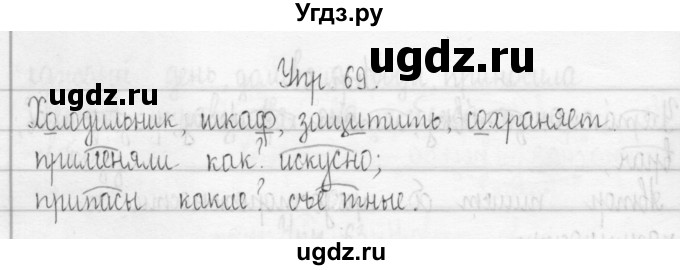 Угдз.ру
ugdz.ru
Упр 69.
ugdz.ru
Холодильник, шкаф, защитить, сохраняет
применяли как? искусно;
припасы какие? съестные.
ugdz.ru
ugdz.ru